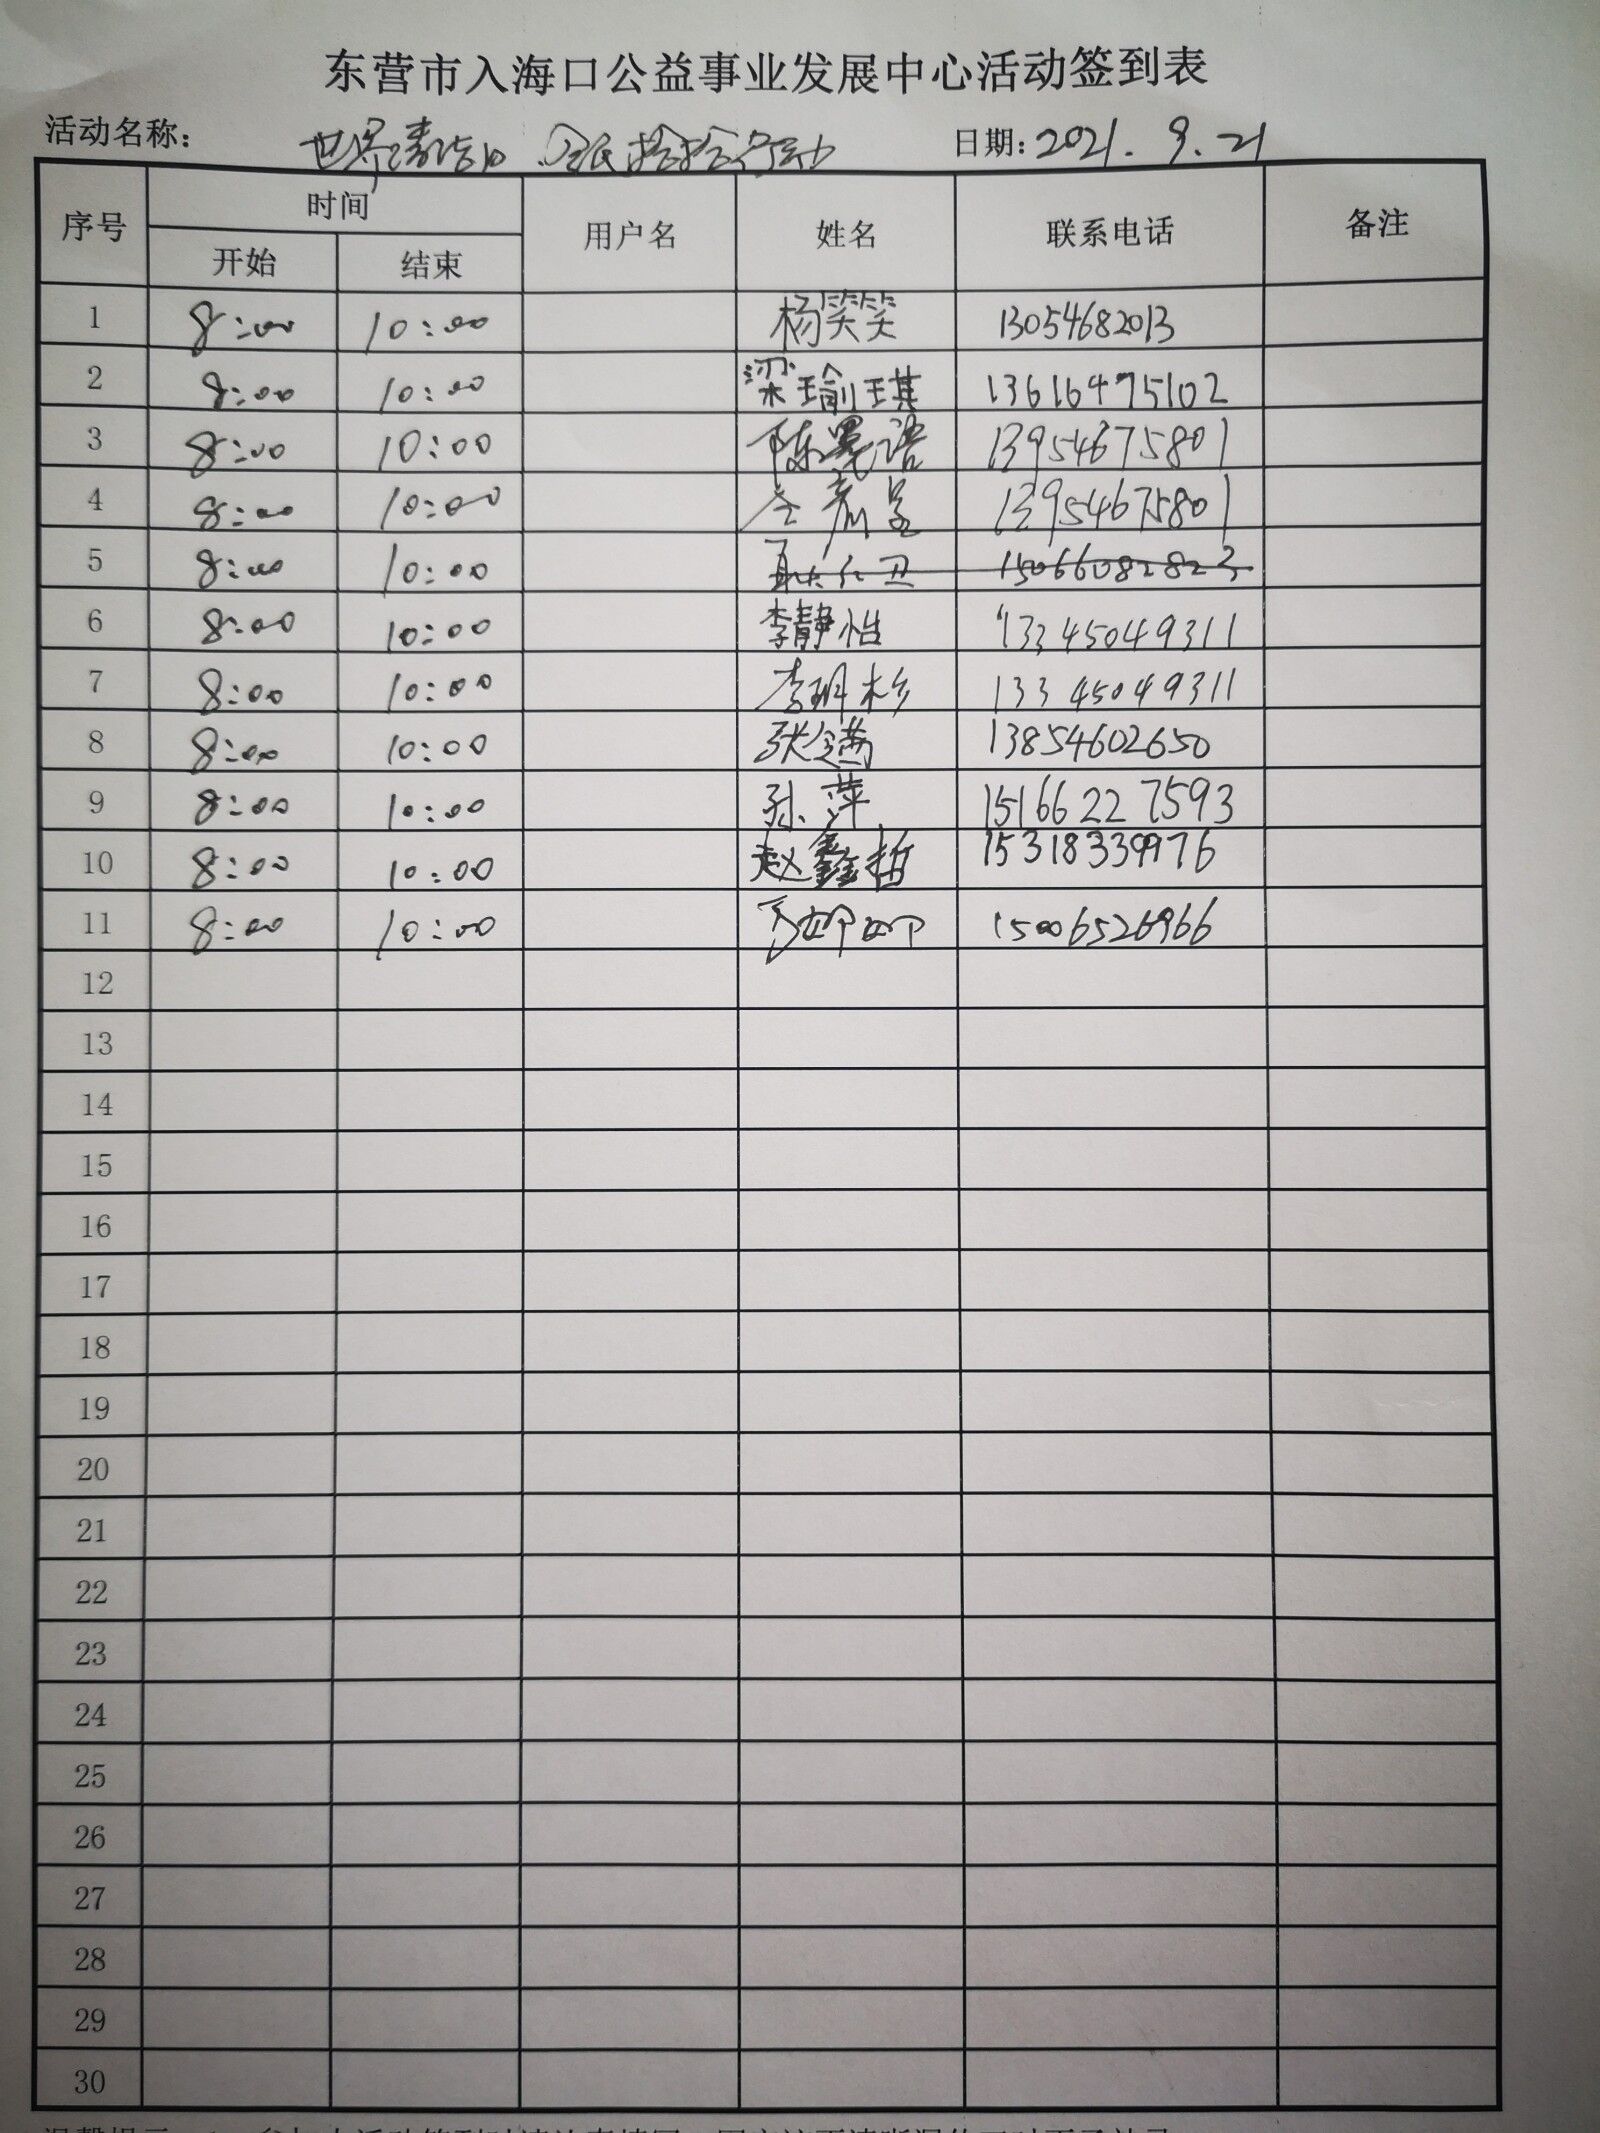 东营市入海口公益事业发展中心活动签到表
活动名称: 世界清洁日 全民捡拾行动 日期: 2021.9.21
序号 时间 用户名 姓名 联系电话 备注
开始 结束
1 8:00 10:00 杨笑笑 13054682013
2 8:00 10:00 梁瑜琪 13616475102
3 8:00 10:00 陈墨语 13954675801
4 8:00 10:00 13954675801
5 8:00 10:00 15066082823
6 8:00 10:00 李静怡 13345049311
7 8:00 10:00 李玥杉 13345049311
8 8:00 10:00 13854602650
9 8:00 10:00 孙萍 15166227593
10 8:00 10:00 赵鑫哲 15318339976
11 8:00 10:00 15006526966
12
13
14
15
16
17
18
19
20
21
22
23
24
25
26
27
28
29
30